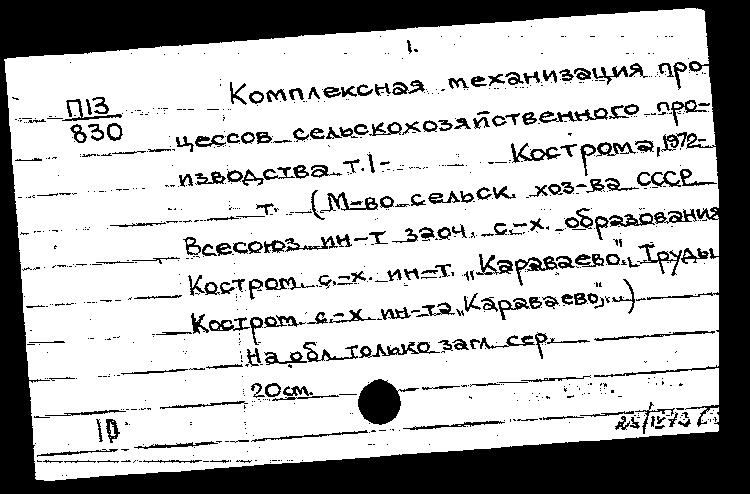 1.
П13
830
Комплексная механизация про-
цессов сельскохозяйственного про-
изводства т.1- Кострома, 1972-
т. (М-во сельск. хоз-ва СССР
Всесоюз. ин-т заоч. с.-х. образования
Костром. с.-х. ин-т. „Караваево”. Труды
Костром. с.-х. ин-та „Караваево”, ...)
На обл. только загл. сер.
20см.
1р